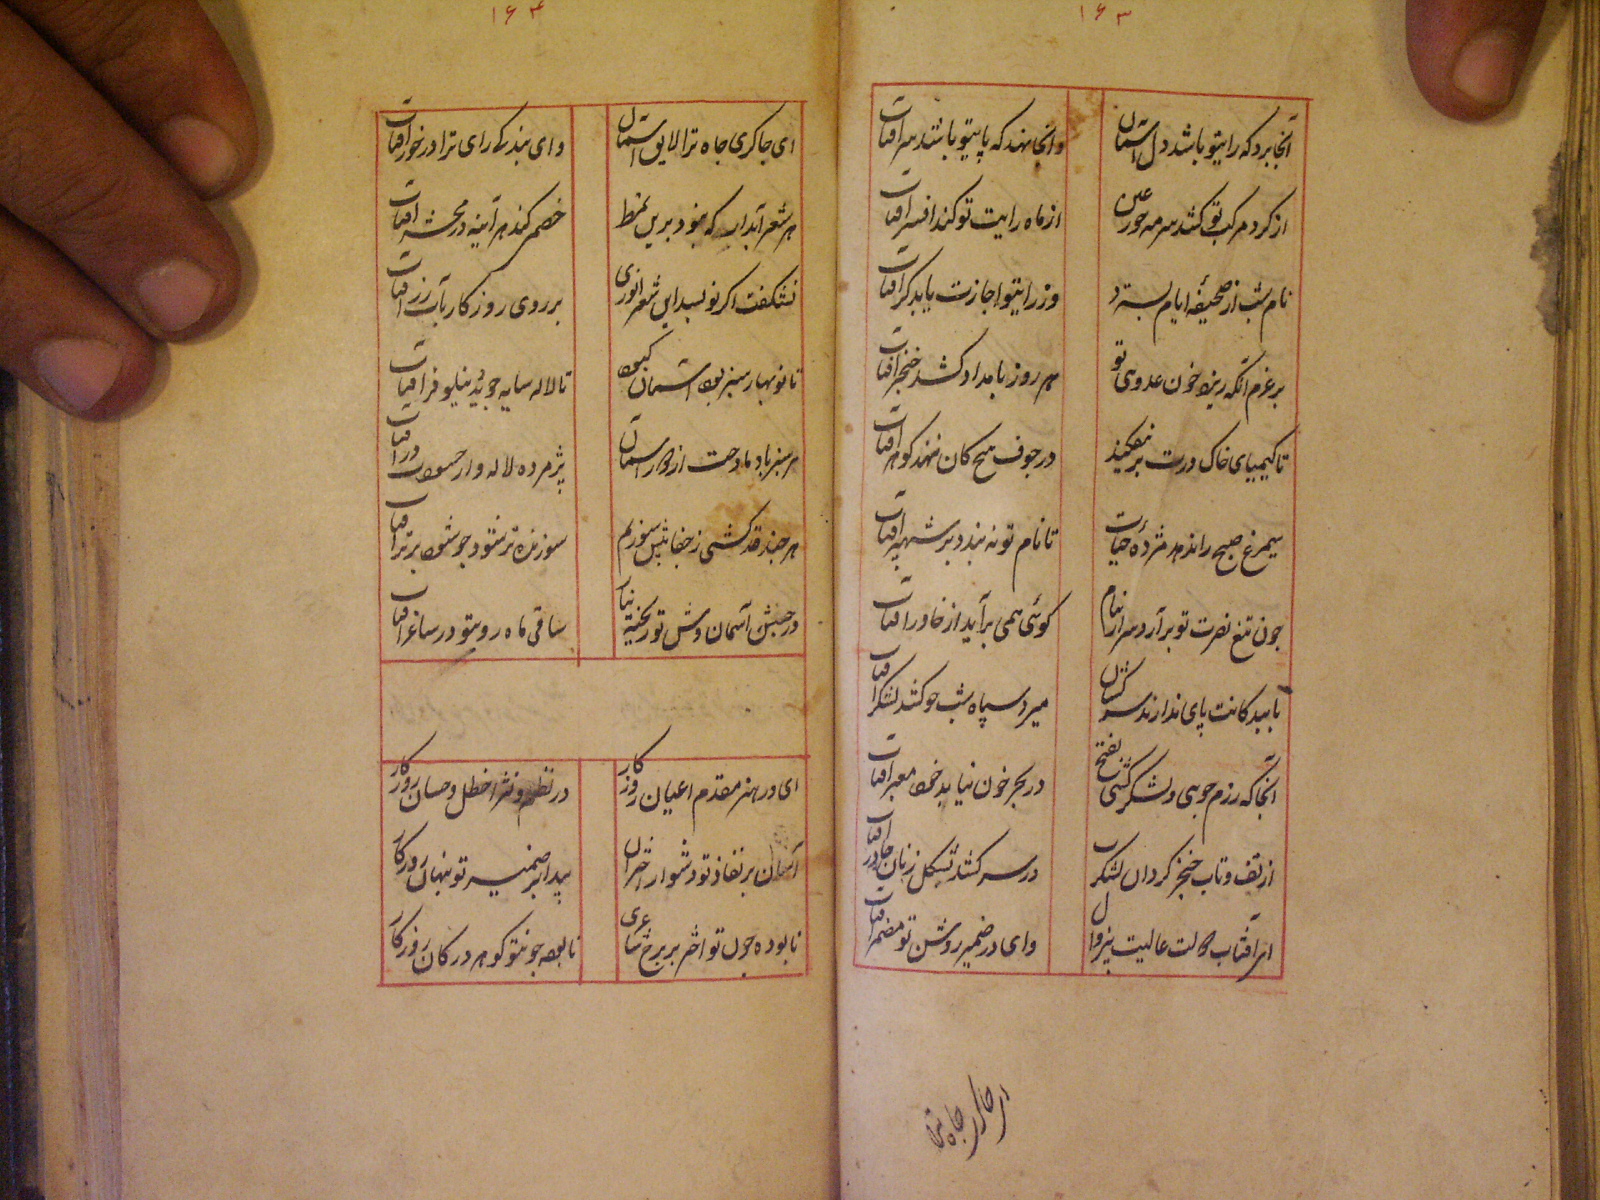 ۱۶۳
آنجا برد که رایتو باشد دل آسمان
وانجا نهد که پایتو باشد سر آفتاب
از کرد مرکب تو کشد سرمه حور عین
از ماه رایت تو کند افسر آفتاب
نام شب از صحیفهٔ ایام بسترد
وز رایتو اجازت یابد کر آفتاب
بر غرم آنکه ریزه خون عدوی تو
هر روز بامداد کشد خنجر آفتاب
تا کیمیای خاک درت بر نیفکند
در جوف هیچ کان ننهد کوهر آفتاب
سیمرغ صبح را ندهد مژدهٔ حیات
تا نام تو نه بندد بر شهپر آفتاب
جون تیغ نصرت تو برآرد سر از نیام
کوئی همی برآید از خاور آفتاب
با بندکانت پای ندارند سرکشان
میرد سپاه شب جو کشد لشکر آفتاب
آنجا که رزم جوی و لشکر کشی بفتح
در بحر خون نیابد معبر آفتاب
از تف و تاب خنجر کردان لشکرت
در سر کشد بشکل زنان جادر آفتاب
ای آفتاب دولت عالیت بیزوال
وای در ضمیر روشن تو مضمر آفتاب
ای جاکر جاه ترا
۱۶۴
ای جاکری جاه ترا لایق آسمان
وای بندکی رای ترا در خور آفتاب
هر شعر آبدار که نبود برین نمط
خصمی کند هر آینه در محشر آفتاب
نشکفت اکر نویسد این شعر انوری
بر روی روزکار بآب زر آفتاب
تا نوبهار سبز بود آسمان کبود
تا لاله سایه جوید و نیلوفر آفتاب
سر سبز باد مادحت از دور آسمان
پژمرده لاله وار حسودت در آفتاب
هر جند قد کشی ز جفا
سوزنده تر شود جو شود برتر آفتاب
در جنبش آسمان وش تو ریخته
ساقی ماه روی تو در ساغر آفتاب
ای در هنر مقدم اعیان روزکار
در نظم و نثر اخطل و حسان روزکار
آسان بر نفاذ تو دشوار اختران
پیدا بر ضمیر تو پنهان روزکار
نابوده جون تو اختر بر برج شاعری
نابوده جونتو کوهر در کان روزکار